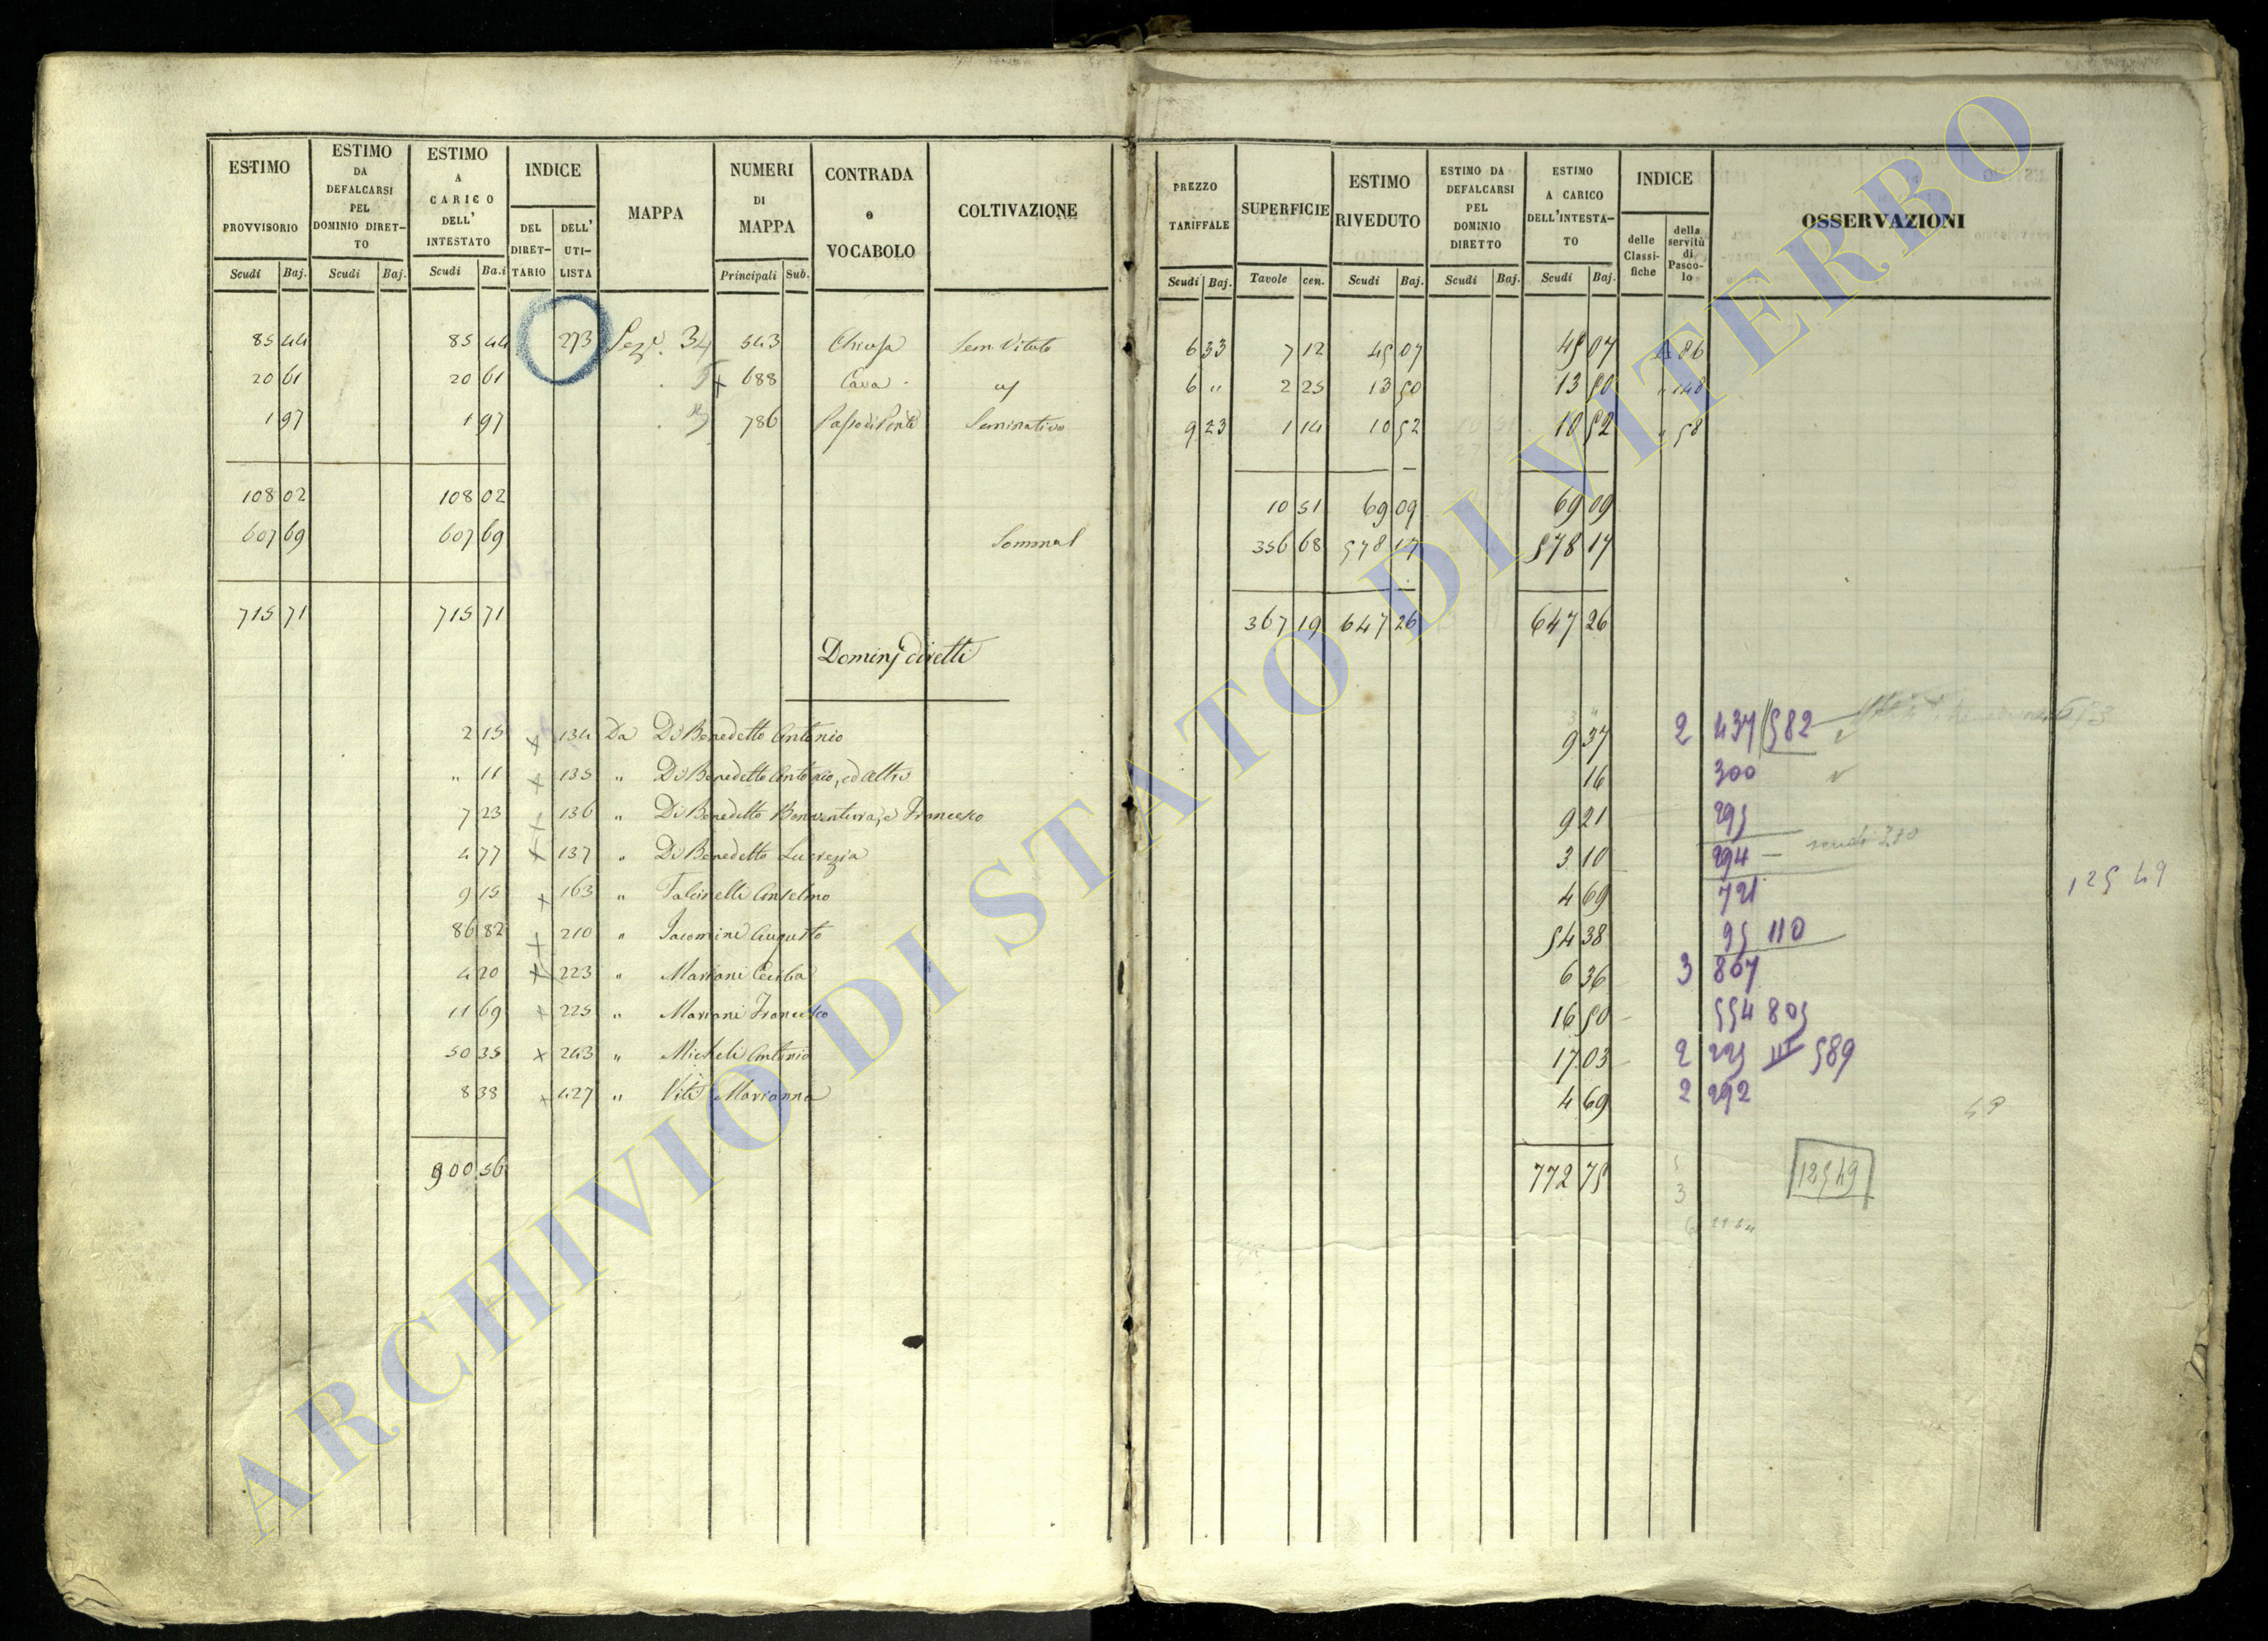 ESTIMO PROVVISORIO Scudi Baj.
ESTIMO DA DEFALCARSI PEL DOMINIO DIRET-TO Scudi Baj.
ESTIMO A CARICO DELL' INTESTATO Scudi Ba.i
INDICE DEL DIRET-TARIO DELL' UTI-LISTA
MAPPA
NUMERI DI MAPPA Principali Sub.
CONTRADA e VOCABOLO
COLTIVAZIONE
PREZZO TARIFFALE Scudi Baj.
SUPERFICIE Tavole cen.
ESTIMO RIVEDUTO Scudi Baj.
ESTIMO DA DEFALCARSI PEL DOMINIO DIRETTO Scudi Baj.
ESTIMO A CARICO DELL'INTESTA-TO Scudi Baj.
INDICE delle Classi-fiche della servitù di Pasco-lo
OSSERVAZIONI
85 44 85 44 273 34 543 Chiusa Sem. Vitato 6 33 7 12 45 07 45 07 86
20 61 20 61 x 688 Cava 6 " 2 25 13 50 13 50 " 148
1 97 1 97 786 Passo di Ponte Seminativo 9 23 1 14 10 52 10 52 " 58
108 02 108 02 10 51 69 09 69 09
607 69 607 69 356 68 578 17 578 17
715 71 715 71 367 19 647 26 647 26
Dominj diretti
2 15 x 134 Da Di Benedetto Antonio 9 37 2 437 582
" 11 x 135 " Di Benedetto Antonio, ed altri 16 300
7 23 136 " Di Benedetto Bonaventura, e Francesco 9 21 295
4 77 137 " Di Benedetto Lucrezia 3 10 294
9 15 x 163 " Falcinelli Anselmo 4 69 721 125 49
86 82 210 " Jacomini Augusto 54 38 95 110
4 20 223 " Mariani Cecilia 6 36 3 867
11 69 x 225 " Mariani Francesco 16 50 554 805
50 35 x 243 " Micheli Antonio 17 03 2 225 III 589
8 38 x 427 " Viti Marianna 4 69 2 292
900 56 772 75 125 49
ARCHIVIO DI STATO DI VITERBO